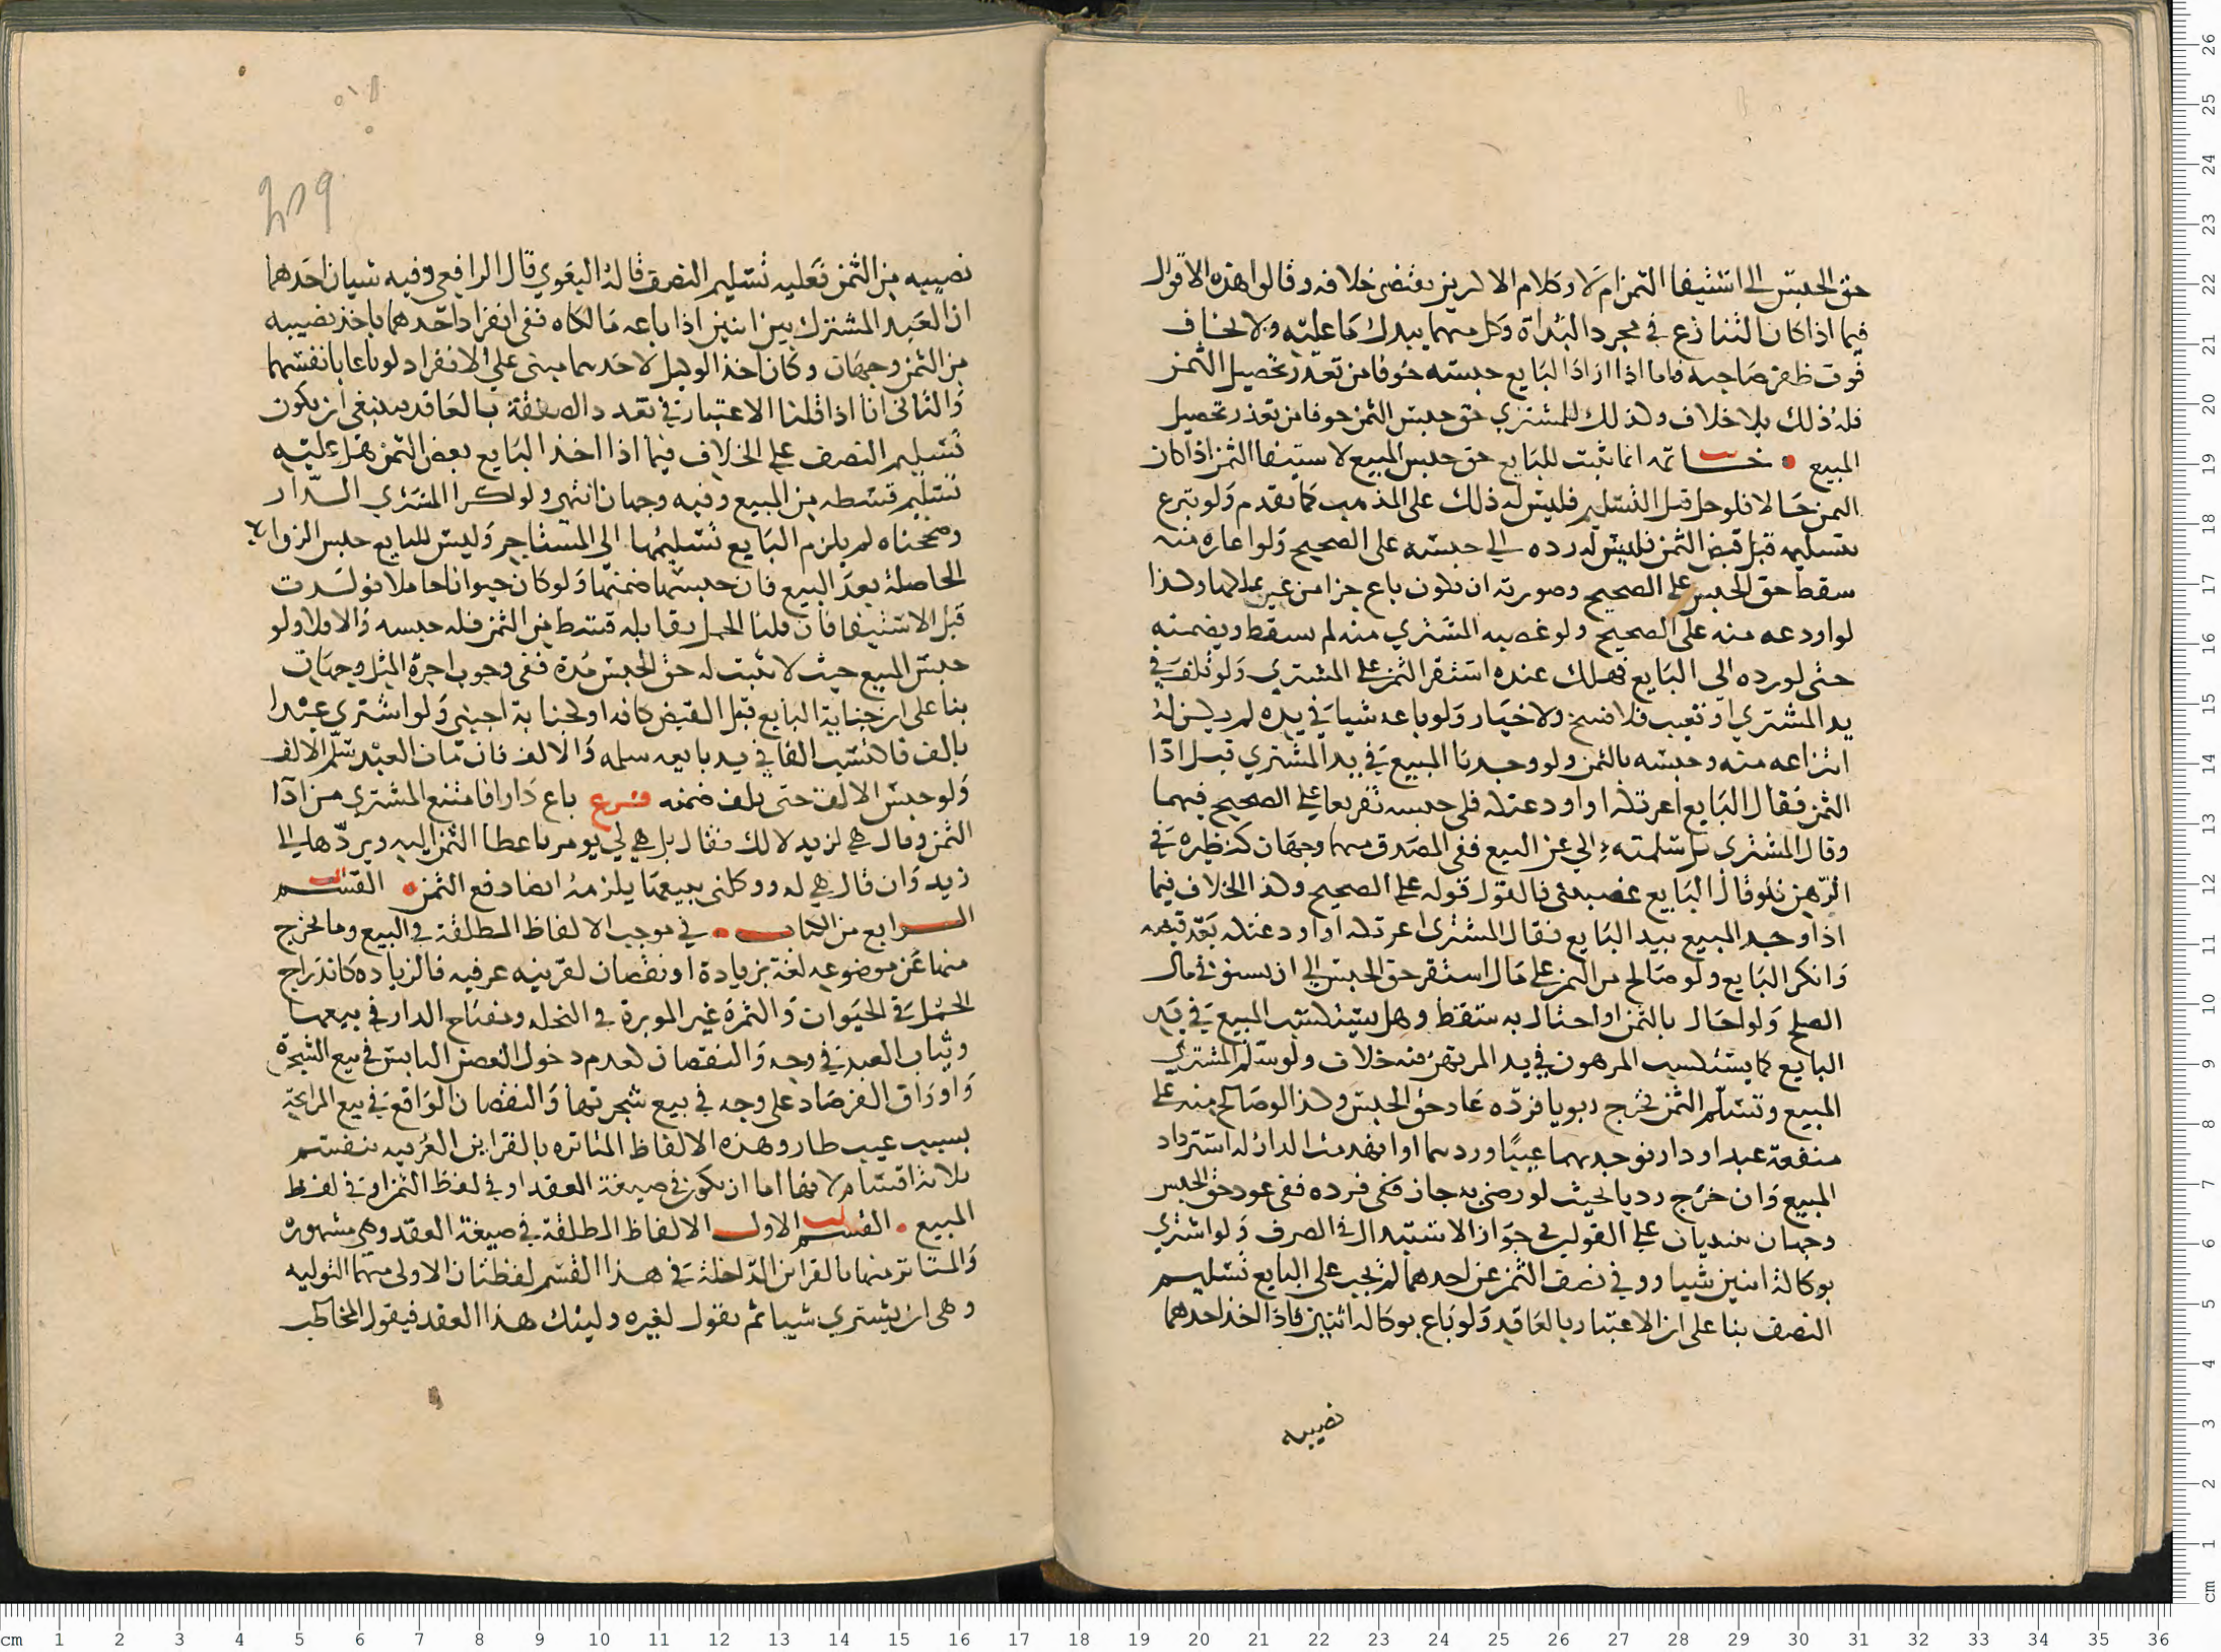 حق الحبس الى استيفا الثمن ام لا وكلام الاكثرين يقتضى خلافه وقالوا هذه الاقوال
فيما اذا كان التنازع في مجرد البداة وكل منهما يبدل ما عليه ولا يخاف
فوت ظفر صاحبه فاما اذا اراد البايع حبسه خوفا من تعذر تحصيل الثمن
فله ذلك بلا خلاف وكذلك للمشتري حق حبس الثمن خوفا من تعذر تحصيل
المبيع خاتمه انما يثبت للبايع حق حبس المبيع لاستيفا الثمن اذا كان
الثمن حالا فلو حل قبل التسليم فليس له ذلك على المذهب كما تقدم ولو تبرع
بتسليمه قبل قبض الثمن فليس له رده الى حبسه على الصحيح ولو اعاره منه
سقط حق الحبس على الصحيح وصورته ان يكون باع جزا من عين يملكها وكذا
لو اودعه منه على الصحيح ولو غصبه المشتري منه لم يسقط ويضمنه
حتى لو رده الى البايع فهلك عنده استقر الثمن على المشتري ولو تلف في
يد المشتري او تعيب فلا فسخ ولا خيار ولو باعه شيا في يده لم يكن له
انتزاعه منه وحبسه بالثمن ولو وجدنا المبيع في يد المشتري قبل ادا
الثمن فقال البايع اعرتك او اودعتك فلي حبسه تفريعا على الصحيح فيهما
وقال المشترى بل سلمته الي عن البيع ففي المصدق منهما وجهان كنظيره في
الرهن فلو قال البايع غصبتنى فالقول قوله على الصحيح وكذا الخلاف فيما
اذا وجد المبيع بيد البايع فقال المشترى اعرتك او اودعتك بعد قبضه
وانكر البايع ولو صالح من الثمن على مال استقر حق الحبس الى ان يستوفي مال
الصلح ولو احال بالثمن او احتال به سقط وهل يستكسب المبيع في يد
البايع كما يستكسب المرهون في يد المرتهن فيه خلاف ولو سلم المشتري
المبيع وتسلم الثمن فخرج ربويا فرده عاد حق الحبس وكذا لو صالح منه على
منفعة عبد او دار فوجد بهما عيبا وردهما او انهدمت الدار له استرداد
المبيع وان خرج رديا بحيث لو رضي به جاز فكفى فرده ففي عود حق الحبس
وجهان مبنيان على القولين في جواز الاستبدال في الصرف ولو اشترى
بوكالة اثنين شيا ووفى نصف الثمن عن احدهما لم يجب على البايع تسليم
النصف بنا على ان الاعتبار بالعاقد ولو باع بوكالة اثنين فاذا اخذ احدهما
نصيبه
259
نصيبه من الثمن فعليه تسليم النصف قاله البغوي قال الرافعي وفيه شيان احدهما
ان العبد المشترك بين اثنين اذا باعه مالكاه ففي انفراد احدهما باخذ نصيبه
من الثمن وجهان وكان اخذ الوكيل لاحدهما مبنى على الانفراد لو باعا بانفسهما
والثانى انا اذا قلنا الاعتبار في تعدد الصفقة بالعاقد فينبغى ان يكون
تسليم النصف على الخلاف فيما اذا اخذ البايع بعض الثمن هل عليه
تسليم قسطه من المبيع وفيه وجهان انتهى ولو اكرا المشتري الدار
وصححناه لم يلزم البايع تسليمها الى المستاجر وليس للبايع حبس الزوايد
الحاصلة بعد البيع فان حبسها ضمنها ولو كان حيوانا حاملا فولدت
قبل الاستيفا فان قلنا الحمل يقابله قسط من الثمن فله حبسه والا فلا ولو
حبس المبيع حيث لا يثبت له حق الحبس مدة ففي وجوب اجرة المثل وجهان
بنا على ان جناية البايع قبل القبض كافه او لجناية اجنبي ولو اشترى عبدا
بالف فاكتسب الفا في يد بايعه سلمه والالف فان مات العبد سلم الالف
ولو حبس الالف حتى تلف ضمنه فرع باع دارا فامتنع المشتري من ادا
الثمن وقال هي لزيد لا لك فقال بل هي لي يومر باعطا الثمن اليه ويردها الى
زيد وان قال هي له ووكلنى ببيعها يلزمه ايضا دفع الثمن القسم
الرابع من الكتاب في موجب الالفاظ المطلقة في البيع وما يخرج
منها عن موضوعه لغة بزيادة او نقصان لقرينه عرفيه فالزياده كاندراج
الحمل في الحيوان والثمرة غير الموبرة في النخله ومفتاح الدار في بيعها
وثياب العبد في وجه والنقصان كعدم دخول الغصن اليابس في بيع الشجرة
واوراق الفرصاد على وجه في بيع شجرتها والنقصان الواقع في بيع المرابحة
بسبب عيب طار وهذه الالفاظ المتاثره بالقراين العرفيه تنقسم
ثلاثة اقسام لانها اما ان يكون في صيغة العقد او في لفظ الثمن او في لفظ
المبيع القسم الاول الالفاظ المطلقة في صيغة العقد وهي مشهوره
والمتاثر منها بالقراين الداخلة في هذا القسم لفظتان الاولى منهما التوليه
وهى ان يشتري شيا ثم يقول لغيره وليتك هذا العقد فيقول المخاطب